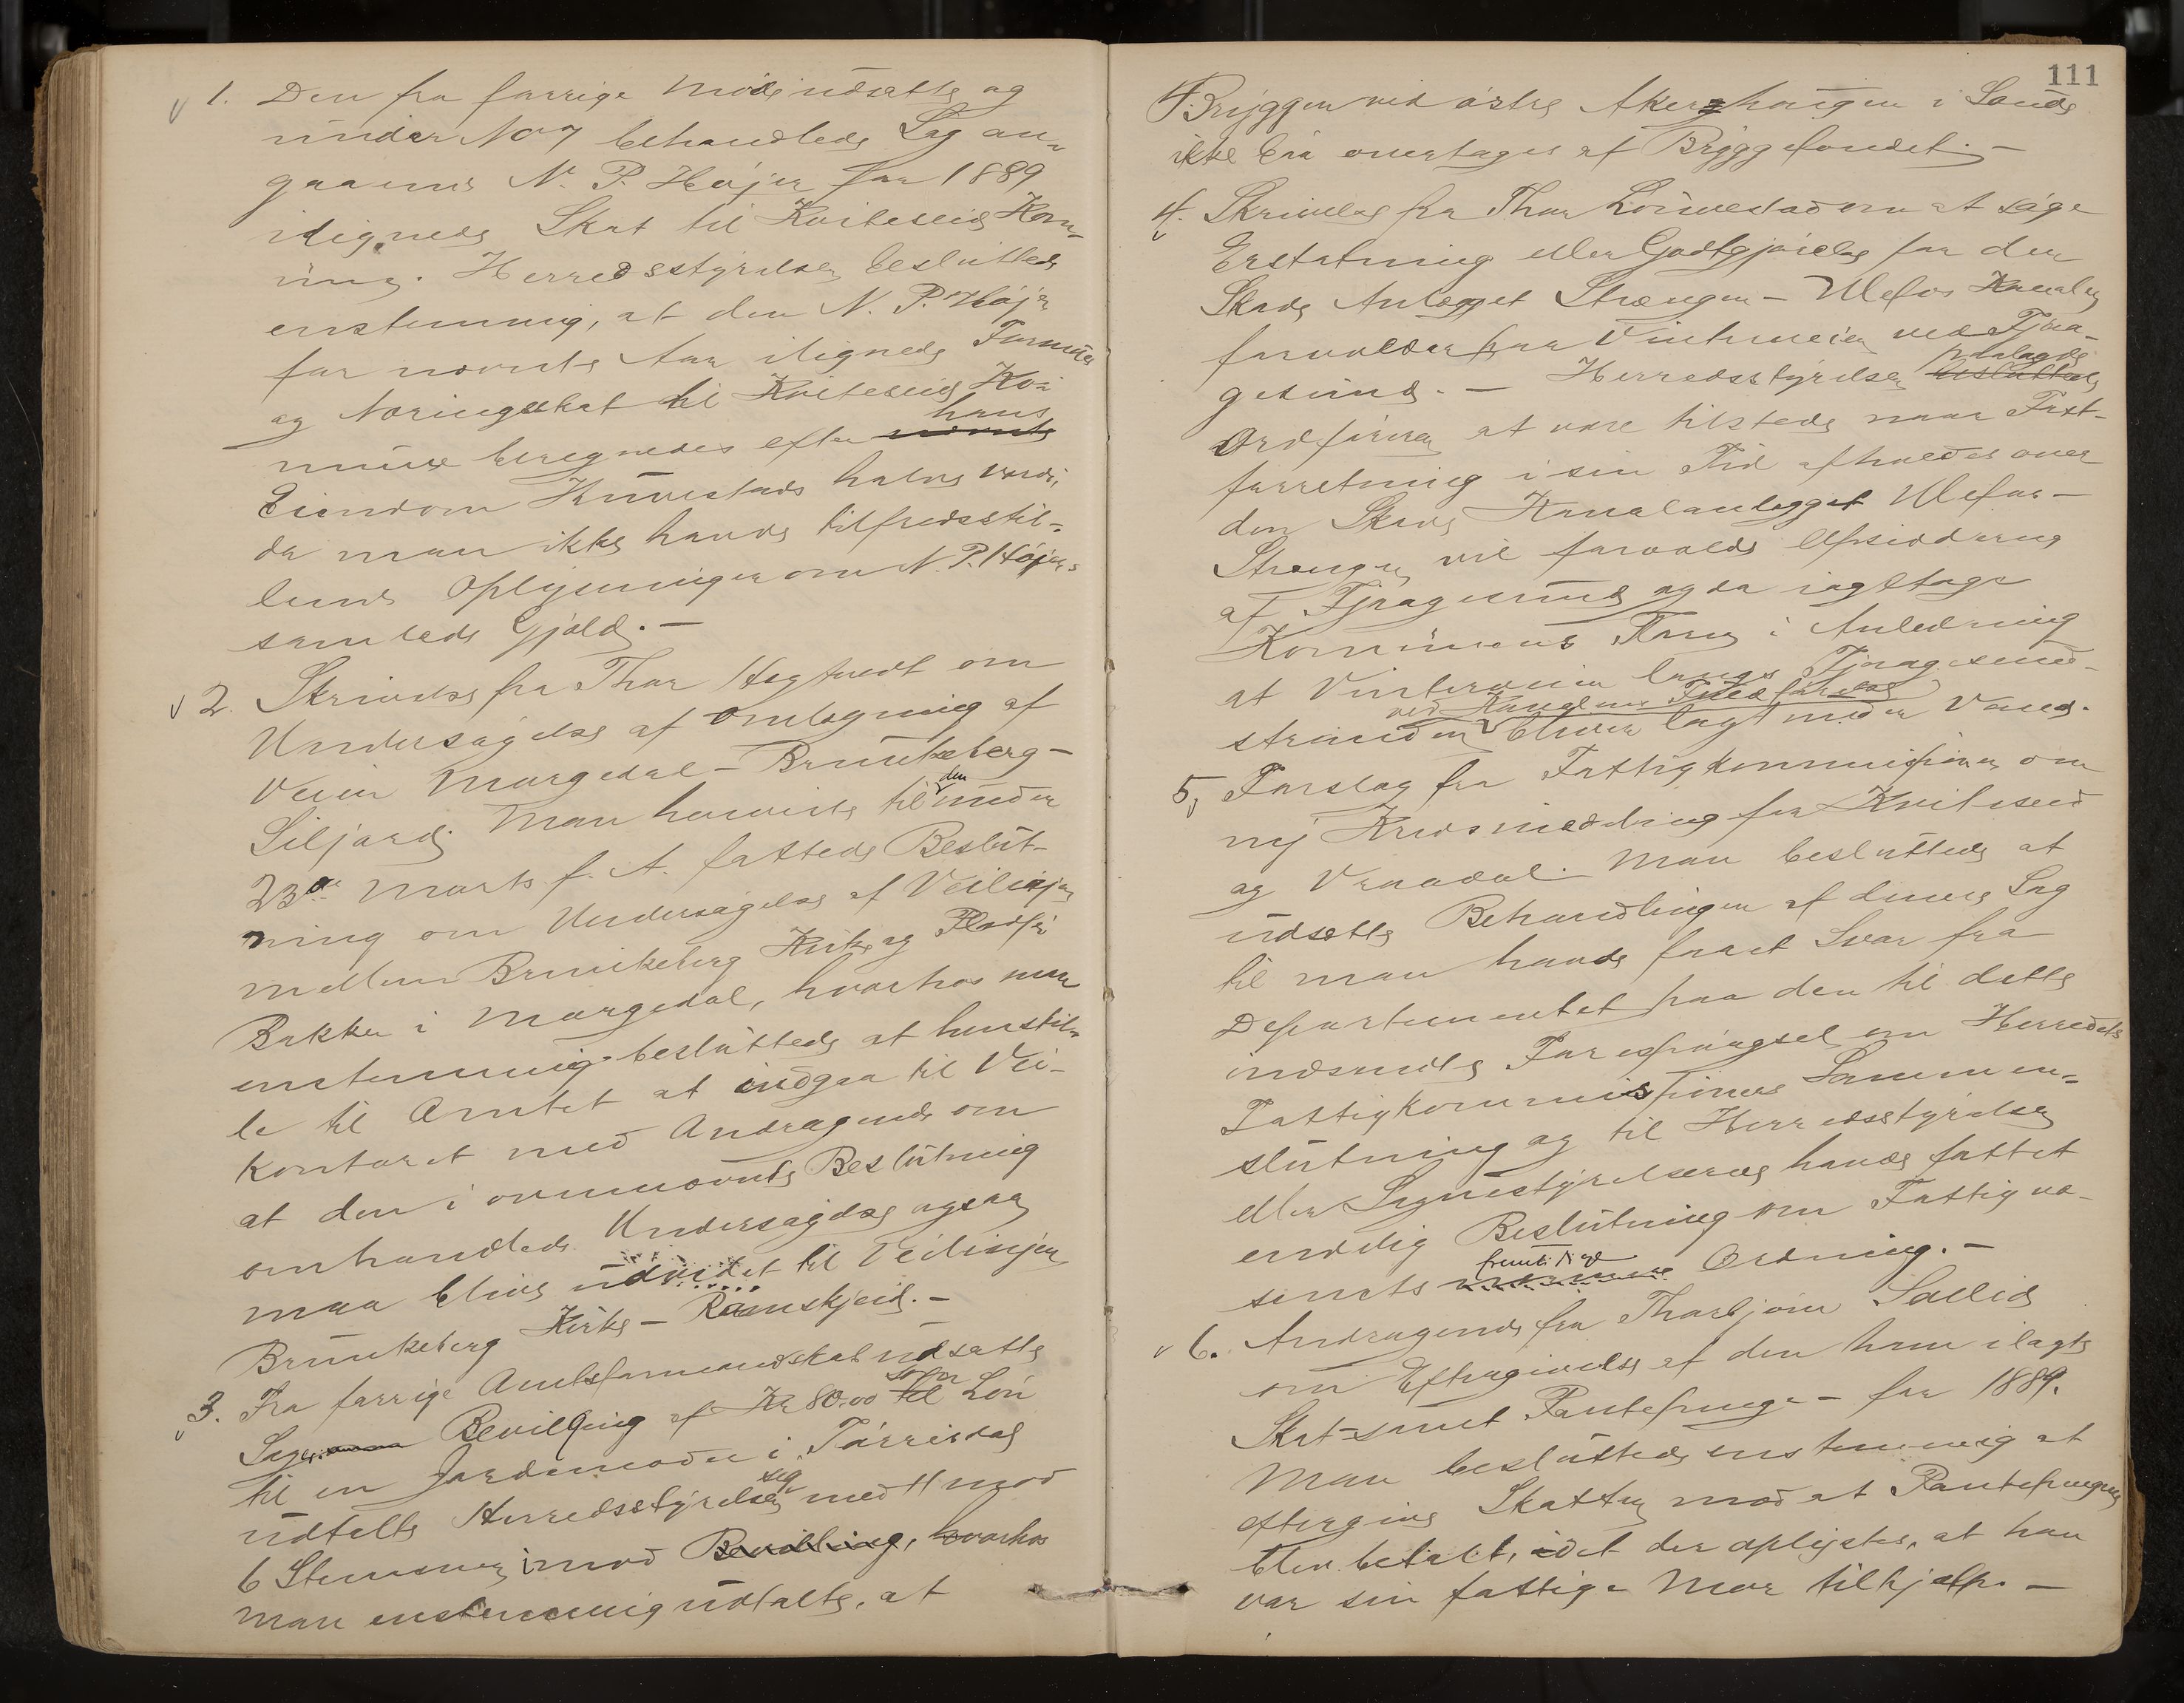 1. Den fra forrige Møde udsatte og
under No 7 behandlede Sag an-
gaaende N. P. Højer for 1889
ilignede Skat til Kviteseid Kom-
une. Herredsstyrelsen besluttede
enstemmig, at den N. P. Højer
for nævnte Aar ilignede Formues
og Næringsskat til Kviteseid Ko-
mune beregnedes efter hans
Eiendom Kuvestads halve Værdi,
da man ikke havde tilfredsstil-
lende Oplysninger om N. P. Højers
samlede Gjæld. -
2. Skrivelse fra Thor Hegtvedt om
Undersøgelse af Omlægning af
Veien Morgedal - Brunkeberg -
Siljord. Man henviste til den under
23de Marts f. A. fattede Beslut-
ning om Undersøgelse af Veilinjen
mellem Brunkeberg Kirke og
Bakken i Morgedal, hvorhos man
enstemmig besluttede at henstil-
le til Amtet at indgaa til Vei-
kontoret med Andragende om
at den i ovennævnte Beslutning
omhandlede Undersøgelse ogsaa
maa blive udvidet til Veilinjen
Brunkeberg Kirke - Ramskjeid. -
3. Fra forrige Amtsformandskab udsatte
Sag Bevilgning af Kr 80.00 som Løn
til en Jordemoder i Tørrisdal
udtalte Herredsstyrelsen sig med 11 mod
6 Stemmer imod Bevilling, hvorhos
man enstemmig udtalte, at
111
Bryggen ved østre Akerhougen i Sunde
ikke bør overtages af Bryggefondet. -
4. Skrivelse fra Thor Lønnestad om at søge
Erstatning eller Godtgjørelse for den
Skade Anlægget Strængen - Ulefos Kanalen
forvolder paa Vinterveien ved Fjaa-
gesund. - Herredsstyrelsen paalagde besluttede
Ordføreren at være tilstede naar Taxt-
forretning i sin Tid afholdes over
den Skade Kanalanlægget Ulefos -
Strængen vil forvolde Opsidderne
af Fjaagesund og da iagttage
Kommunens Tarv i Anledning
at Vinterveien langs Fjaagesund-
stranden ved Kanalens Fuldførelse bliver lagt under Vand.
5. Forslag fra Fattigkommissionen om
ny Kredsinddeling for Kviteseid
og Vraadal. Man besluttede at
udsætte Behandlingen af denne Sag
til man havde faaet Svar fra
Departementet paa den til dette
indsendte Forespørgsel om Herredets
Fattigkommissioners Sammen-
slutning og til Herredsstyrelsen
eller Sognestyrelserne havde fattet
endelig Beslutning om Fattigvæ-
senets fremtidige Ordning. -
6. Andragende fra Thorbjørn
om Eftergivelse af den ham ilagte
Skat - samt Pantepenge - for 1889.
Man besluttede enstemmig at
eftergive Skatten mod at Pantepengene
blev betalt, idet der oplystes, at han
var sin fattige Mor til hjælp. -